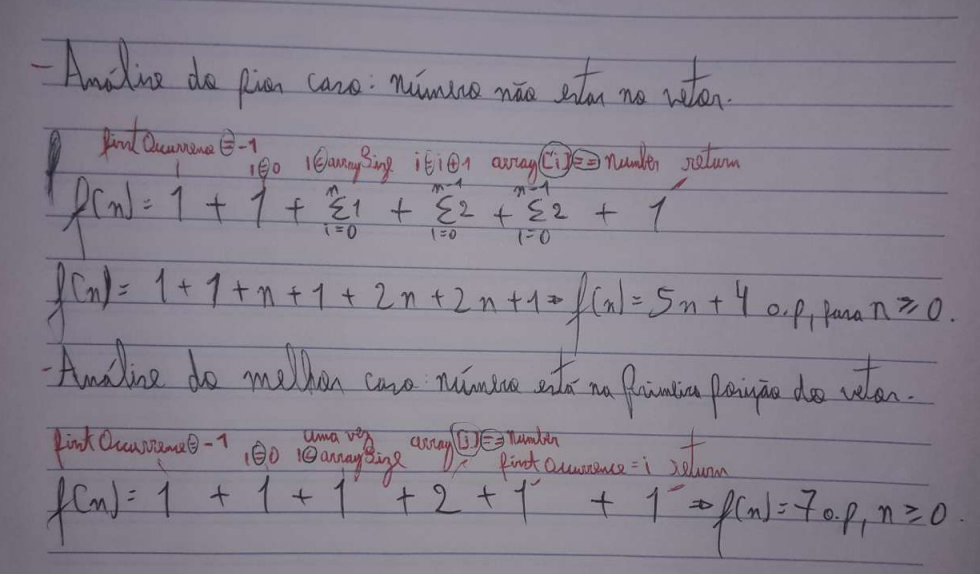 - Análise do pior caso: número não estar no vetor.
firstOccurrence = -1 i = 0 i < arraySize i = i + 1 array[i] == number return
f(n) = 1 + 1 + n Σ i=0 1 + n-1 Σ i=0 2 + n-1 Σ i=0 2 + 1
f(n) = 1 + 1 + n + 1 + 2n + 2n + 1 ⇒ f(n) = 5n + 4 o.p, para n ≥ 0.
- Análise do melhor caso: número está na primeira posição do vetor.
firstOccurrence = -1 i = 0 uma vez i < arraySize array[i] == number firstOccurrence = i return
f(n) = 1 + 1 + 1 + 2 + 1 + 1 ⇒ f(n) = 7 o.p, n ≥ 0.